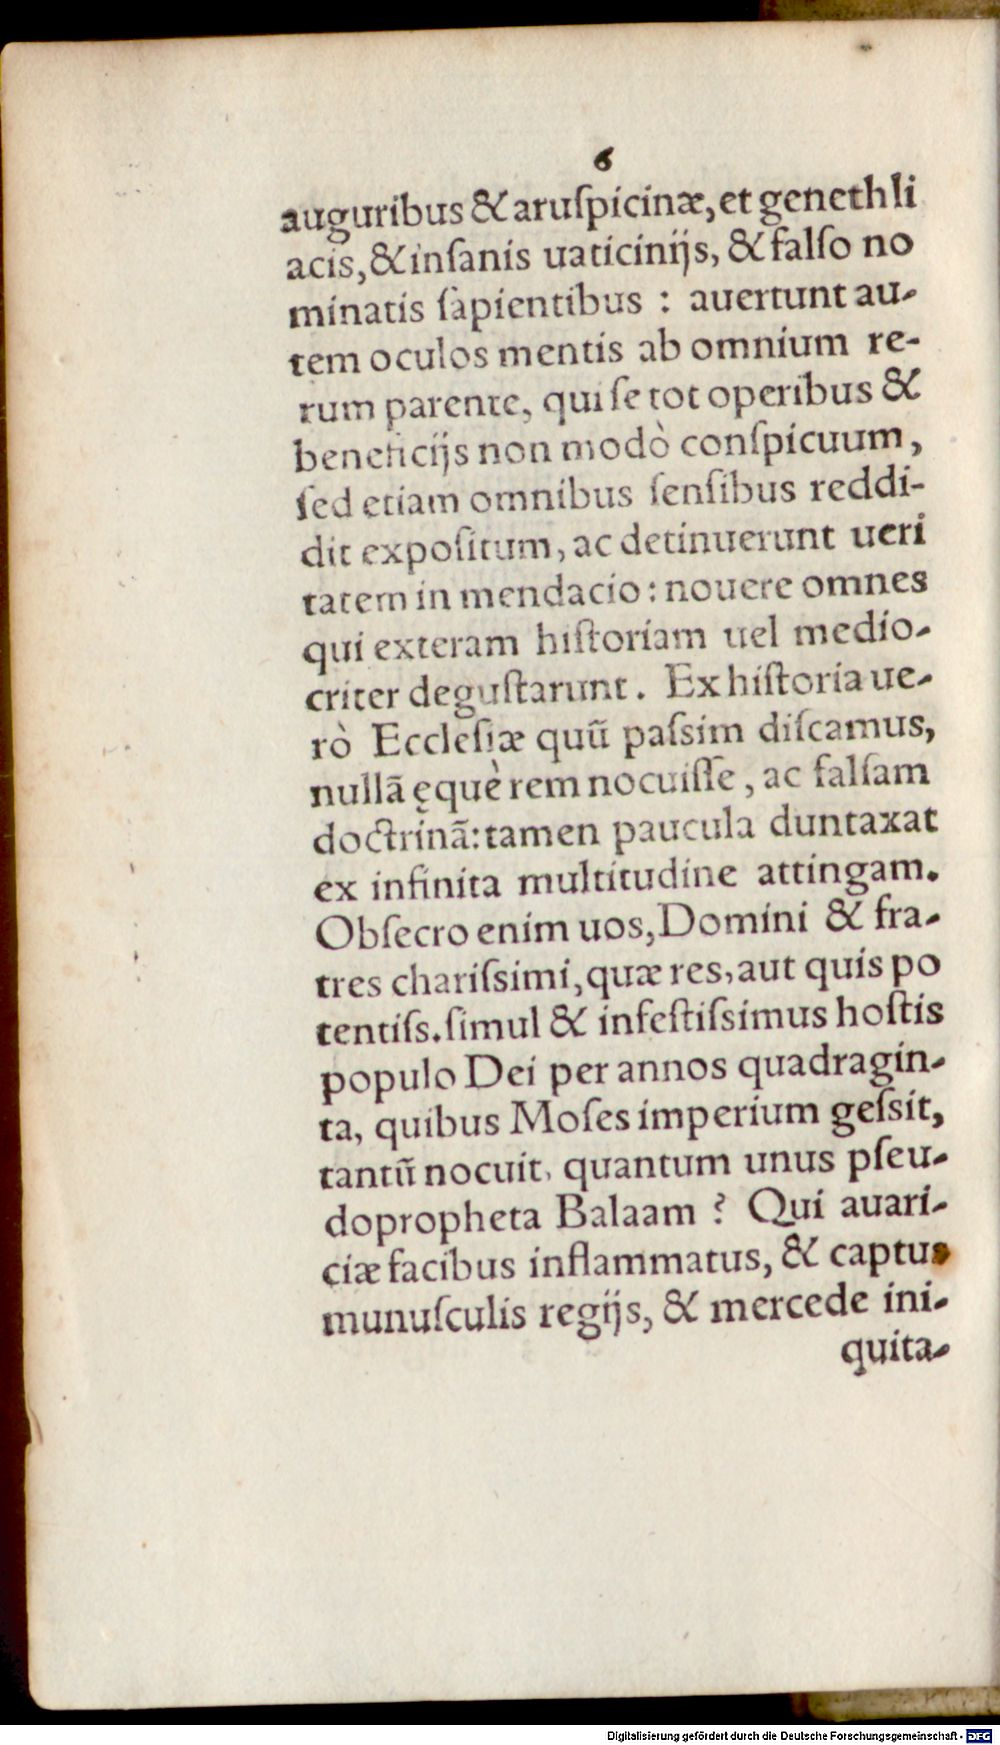 6
auguribus & aruſpicinæ, et genethli
acis, & inſanis uaticinijs, & falſo no
minatis ſapientibus : auertunt au-
tem oculos mentis ab omnium re-
rum parente, qui ſe tot operibus &
beneficijs non modò conſpicuum,
ſed etiam omnibus ſenſibus reddi-
dit expoſitum, ac detinuerunt ueri
tatem in mendacio: nouere omnes
qui exteram hiſtoriam uel medio-
criter deguſtarunt. Ex hiſtoria ue-
rò Eccleſiæ quũ paſsim diſcamus,
nullã ęquè rem nocuiſſe, ac falſam
doctrinã: tamen paucula duntaxat
ex infinita multitudine attingam.
Obſecro enim uos, Domini & fra-
tres chariſsimi, quæ res, aut quis po
tentiſs. ſimul & infeſtiſsimus hoſtis
populo Dei per annos quadragin-
ta, quibus Moſes imperium geſsit,
tantũ nocuit, quantum unus pſeu-
dopropheta Balaam ? Qui auari-
ciæ facibus inflammatus, & captus
munuſculis regijs, & mercede ini-
quita-
Digitalisierung gefördert durch die Deutsche Forschungsgemeinschaft - DFG